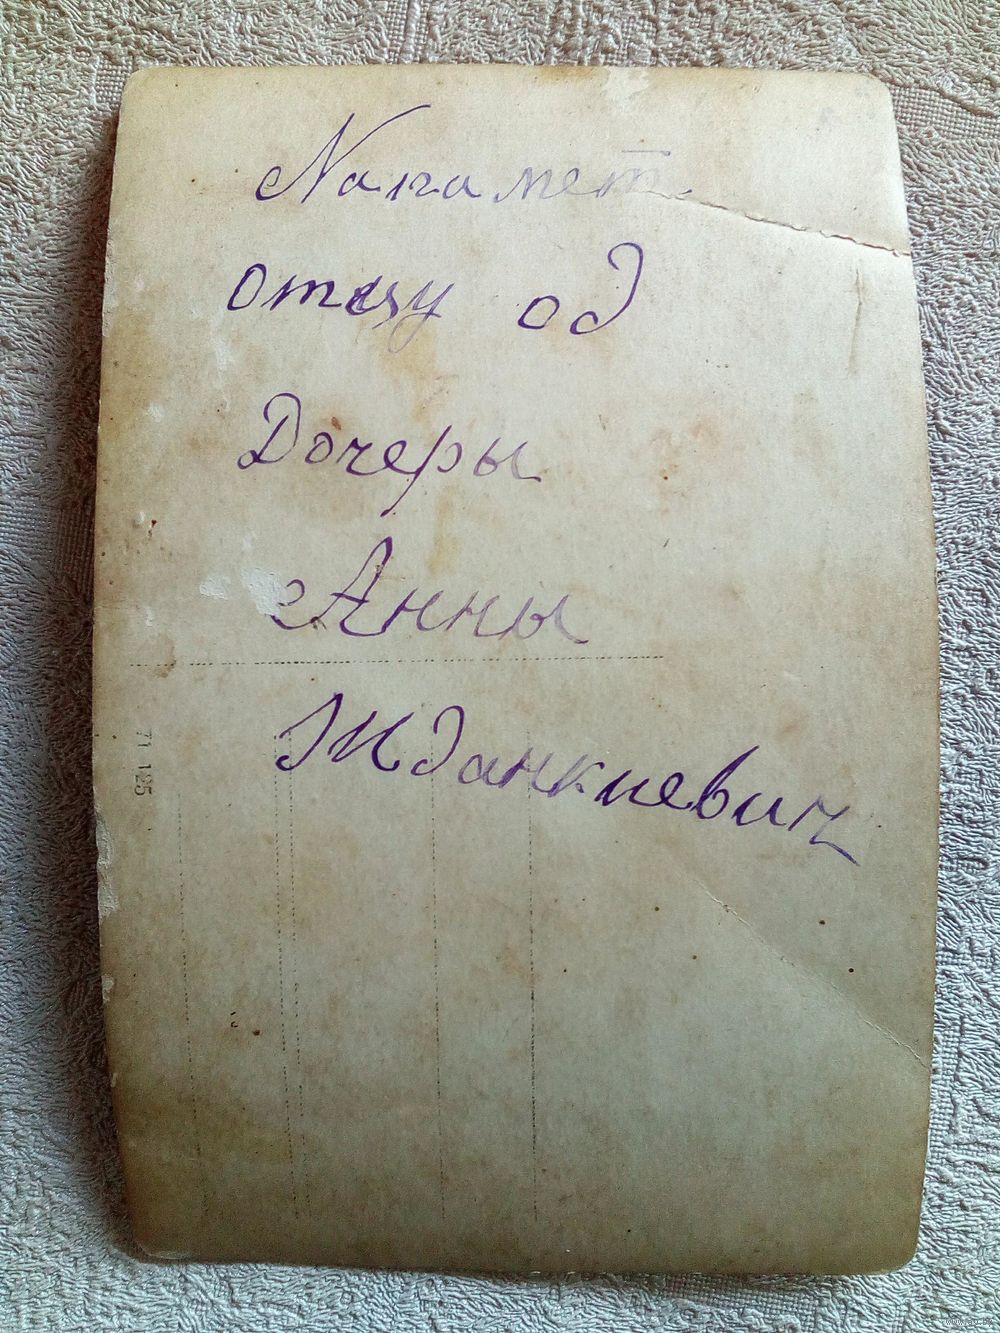 Nапамет
отцу од
Дочеры
Анны
Жданкиевич
71 125